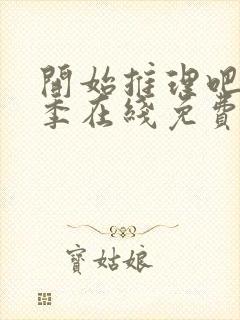 開始推理吧
季在綫免費
寶姑娘